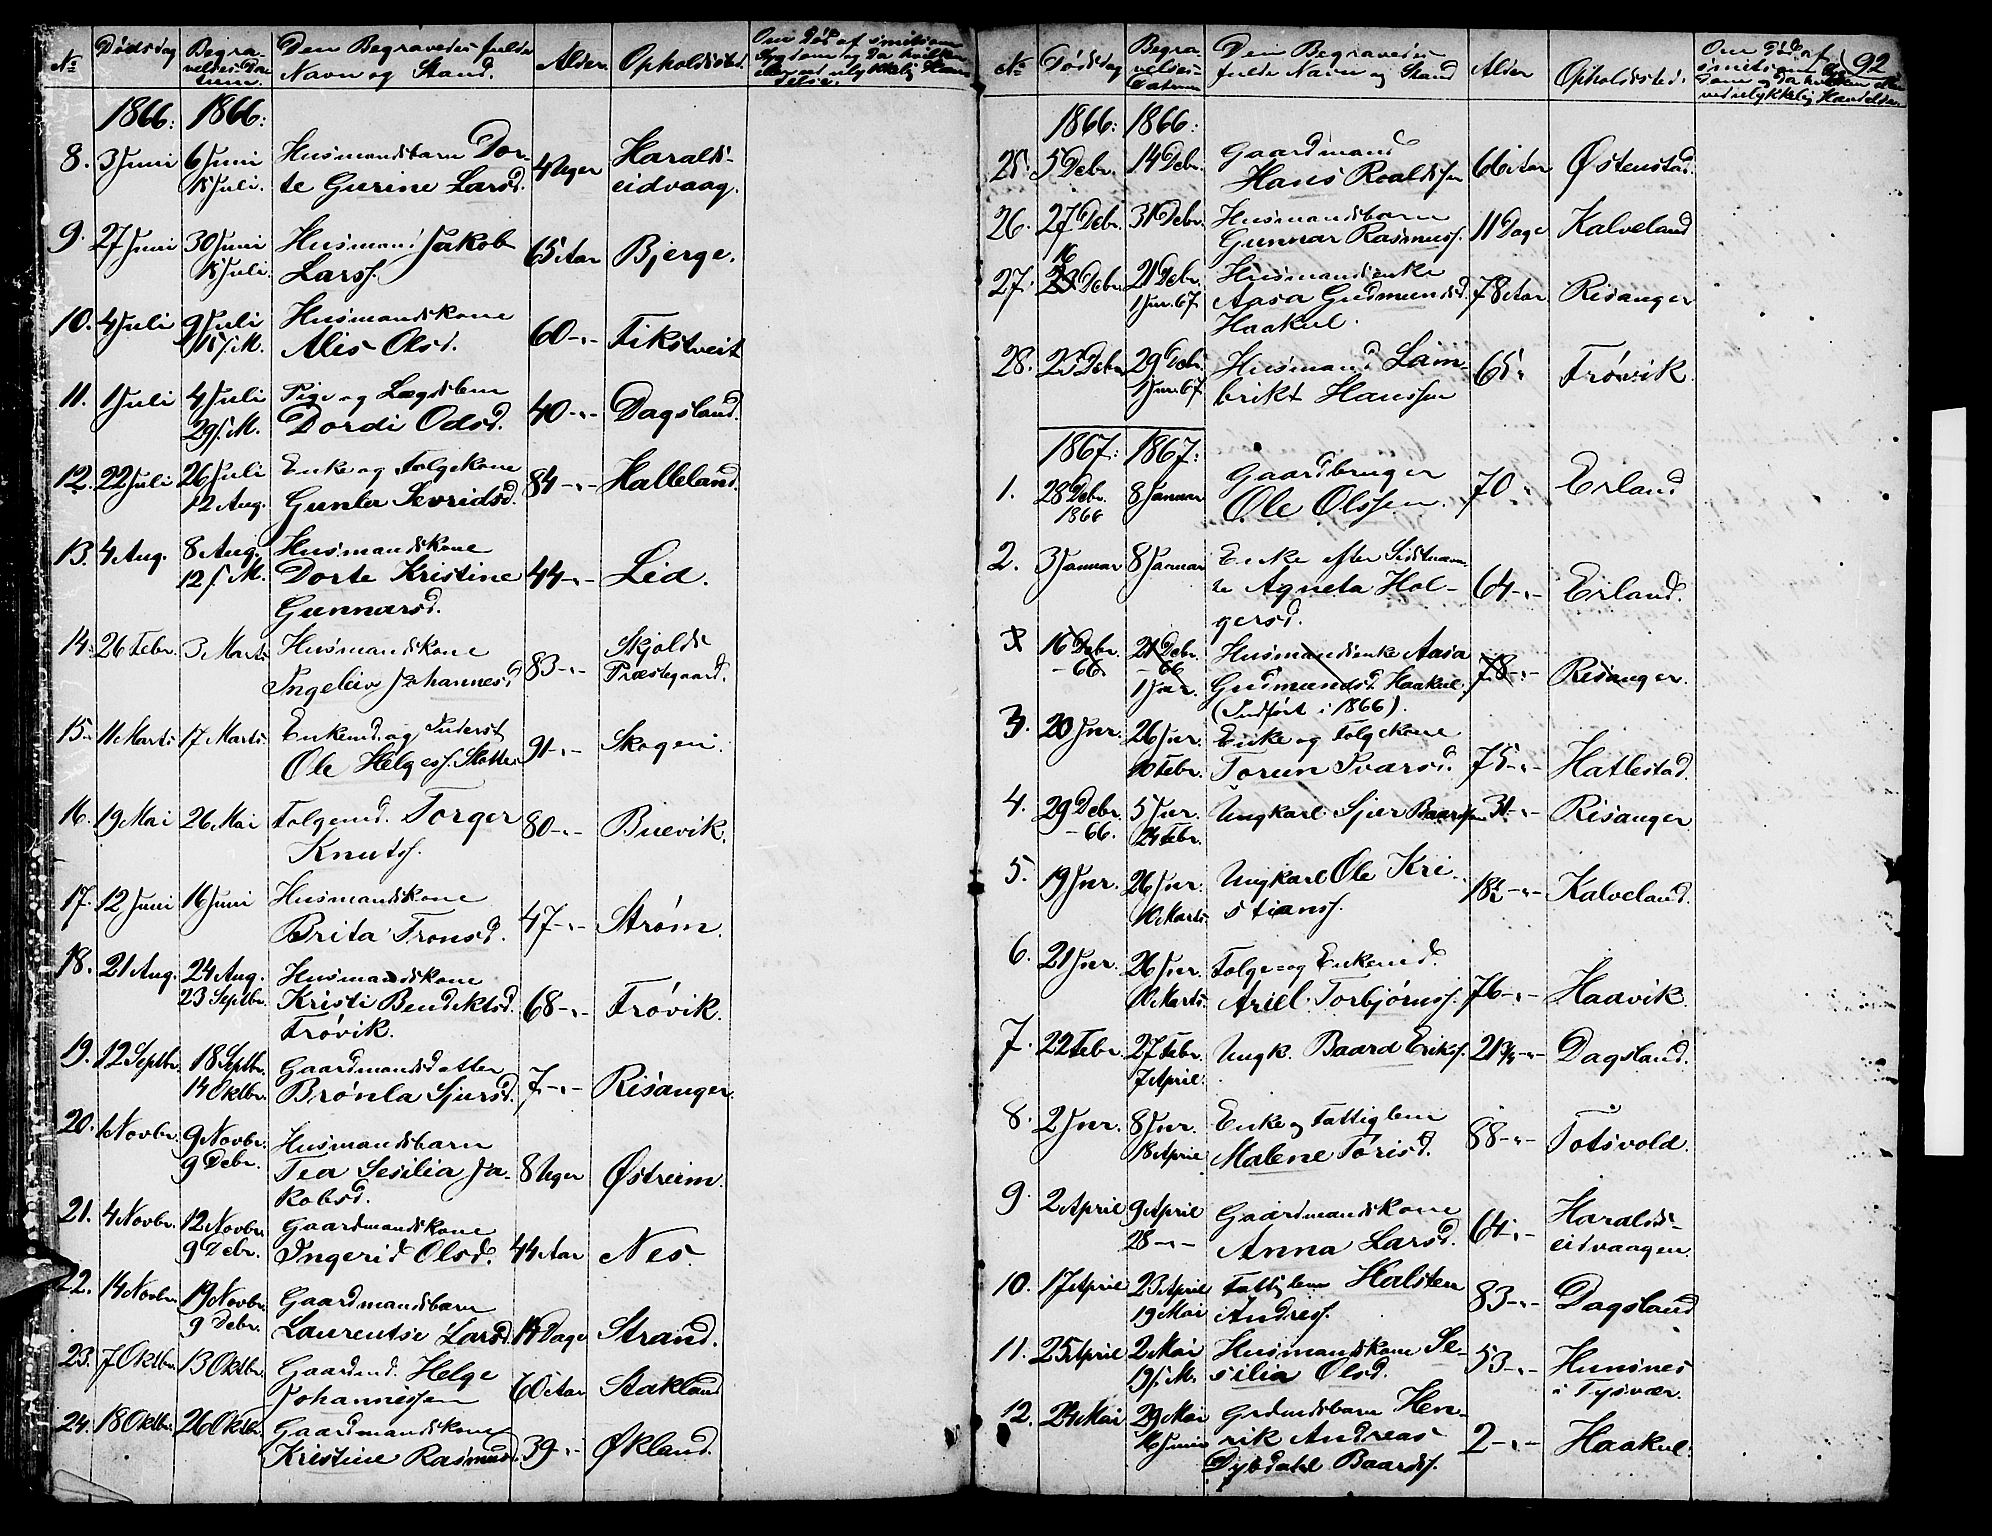 No
Dødsdag
Begra-
velses Da-
tum.
Den Begravedes fulde
Navn og Stand.
Alder.
Opholdssted.
Om Død af smitsom
Sygdom og da hvilken
eller ved ulykkelig Hæn-
delse.
1866: 1866:
8. 3 Juni 6 Juni Husmandsbarn Dor- 4 Uger Haralds-
15 Juli. te Gurine Larsd. eidvaag.
9. 27 Juni 30 Juni Husmand Jakob 65 Aar Bjerge.
15 Juli. Larss.
10. 4 Juli 9 Juli Husmandskone 60 -"- Fikstveit
15/. M. Alis Olsd.
11. 1 Juli 4 Juli Pige og Lægdslem 40 -"- Dagsland.
29/. M. Dordi Odsd.
12. 22 Juli 26 Juli Enke og Folgekone 84 -"- Halleland.
12 Aug. Gunla Sevridsd.
13. 4 Aug. 8 Aug. Husmandskone 44 -"- Lid.
12/. M. Dorte Kristine
Gunnarsd.
14. 26 Febr. 3 Marts Husmandskone 83 -"- Skjolds
Ingeleiv Johannesd Præstegaard.
15. 11 Marts 17 Marts. Enkemd. og Inderst 91 -"- Skogen.
Ole Helgess.
16. 19 Mai 26 Mai Folgemd. Torger 80 -"- Buevik.
Knutss.
17. 12 Juni 16 Juni Husmandskone 47 -"- Strøm.
Brita Tronsd.
18. 21 Aug. 24 Aug. Husmandskone 68 -"- Frøvik.
23 Septbr. Kristi Bendiktsd.
Frøvik.
19. 12 Septbr. 18 Septbr. Gaardmandsdatter 7 -"- Risanger.
14 Oktbr. Brønla Sjursd.
20. 1 Novbr. 9 Novbr. Husmandsbarn 8 Uger Østreim.
9 Debr. Tea Sesilia Ja-
kobsd.
21. 4 Novbr. 12 Novbr. Gaardmandskone 44 Aar Nes.
9 Debr. Ingerid Olsd.
22. 14 Novbr. 19 Novbr. Gaardmandsbarn 14 Dage Strand.
9 Debr. Laurentse Larsd.
23. 7 Oktbr. 13 Oktbr. Gaardmd. Helge 60 Aar Stakland
Johannessen
24. 18 Oktbr. 26 Oktbr. Gaardmandskone 39 -"- Økland.
Kristine Rasmusd.
92
No
Dødsdag
Begra-
velses-
Datum
Den Begravedes
fulde Navn og Stand
Alder
Opholdssted.
Om Død af
smitsom Syg-
dom og da hvilken eller
ved ulykkelig Hændelse.
1866: 1866:
25. 5 Debr. 14 Debr. Gaardmand 66 Aar Østenstad.
Hans Roaldssen
26. 27 Debr. 31 Debr. Husmandsbarn 11 Dage Kalveland
Gunnar Rasmuss.
16
27. 23 Debr. 21 Debr. Husmandsenke 78 Aar Risanger
1 Jnr. 67. Aasa Gudmundsd.
Haakul.
28. 23 Debr. 29 Debr. Husmand Lam- 65 " Frøvik.
1 Jnr. 67. brikt Hanssen
1867: 1867:
1. 28 Debr. 8 Januar Gaardbruger 70 " Erland
1866 Ole Olssen.
2. 3 Januar 8 Januar Enke efter Sidstnævn- 64 -"- Erland.
te Agneta Hol-
gersd.
3 16 Debr. 21 Debr. Husmandsenke Aasa 78 -"- Risanger.
-66. -66 Gudmundsd. Haakul.
1 Jnr. (Indført i 1866).
3. 20 Jnr. 26 Jnr. Enke og Folgekone 75 -"- Hatlestad.
10 Febr. Torun Ivarsd.
4. 29 Debr. 5 Jnr. Ungkarl Sjur Baardsen 31 -"- Risanger
-66. 24 Febr.
5. 19 Jnr. 26 Jnr. Ungkarl Ole Kri- 18½ -"- Kalveland.
10 Marts. stianss.
6. 21 Jnr. 26 Jnr. Folge- og Enkemd. 76 -"- Haavik.
10 Marts. Ariel Torbjørnss.
7. 22 Febr. 27 Febr. Ungk. Baard Erikss. 21¾ -"- Dagsland.
7 April.
8. 2 Jnr. 8 Jnr. Enke og Fattiglem 88 -"- Totsvold.
18 April Malene Torisd.
9. 2 April 9 April Gaardmandskone 64 -"- Haralds-
28 -"- Anna Larsd. eidvaagen.
10. 17 April 23 April Fattiglem Halsten 83 -"- Dagsland
19 Mai Andress.
11. 25 April 2 Mai Husmandskone Se- 53 -"- Hunsnes
19/. M. silia Olsd. i Tysvær.
12. 24 Mai 29 Mai Grdmdsbarn Hen- 2 -"- Haakul.
16 Juni rik Andreas
Dybdahl Baardss.